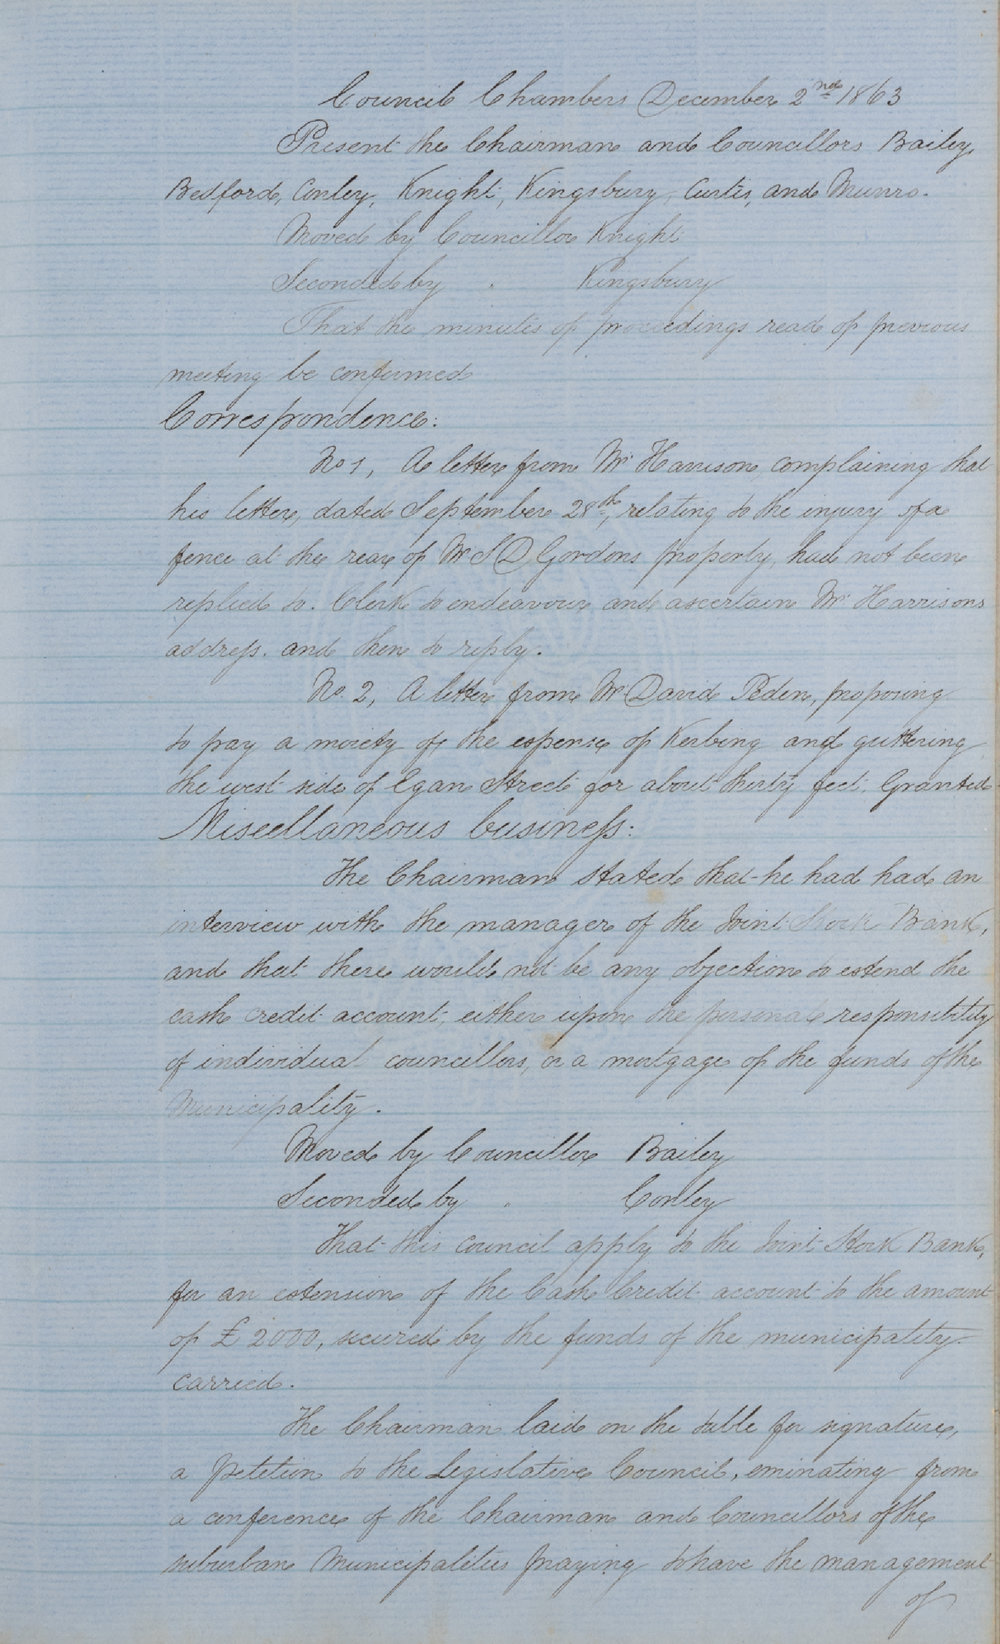 Council Chambers December 2nd 1863
Present the Chairman and Councillors Bailey,
Bedford, Conley, Knight, Kingsbury, Curtis, and Munro.
Moved by Councillor Knight
Seconded by " Kingsbury
That the minutes of proceedings read of previous
meeting be confirmed
Correspondence:
No 1, A letter from Mr Harrison, complaining that
his letter, dated September 28th, relating to the injury of a
fence at the rear of Mr S D Gordons property, had not been
replied to. Clerk to endeavour and ascertain Mr Harrisons
address. and then to reply.
No. 2, A letter from Mr David Peden, proposing
to pay a moiety of the expense of Kerbing and guttering
the west side of Egan Street for about thirty feet. Granted
Miscellaneous business:
The Chairman stated that he had had an
interview with the manager of the Joint Stock Bank,
and that there would not be any objection to extend the
cash credit account, either upon the personal responsibility
of individual councillors, or a mortgage of the funds of the
Municipality.
Moved by Councillor Bailey
Seconded by " Conley
That this council apply to the Joint Stock Bank,
for an extension of the Cash Credit account to the amount
of £2000, secured by the funds of the municipality.
carried.
The Chairman laid on the table for signature,
a petition to the Legislative Council, eminating from
a conference of the Chairman and Councillors of the
suburban Municipalities praying to have the management
of